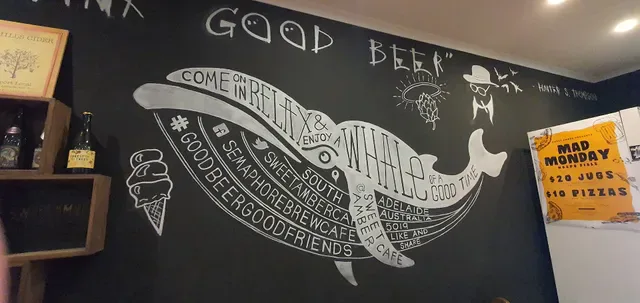 GOOD BEER"
- HUNTER S. THOMPSON
COME ON IN RELAX & ENJOY A WHALE OF A GOOD TIME
#GOODBEERGOODFRIENDS
SEMAPHOREBREWCAFE
SWEETAMBERCAFE
SOUTH
ADELAIDE
AUSTRALIA
5019
LIKE AND
SHARE
@SWEET
AMBER CAFE
MAD
MONDAY
$20 JUGS
$10 PIZZAS